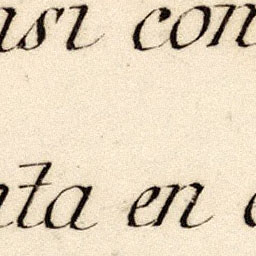 asi con
nta en